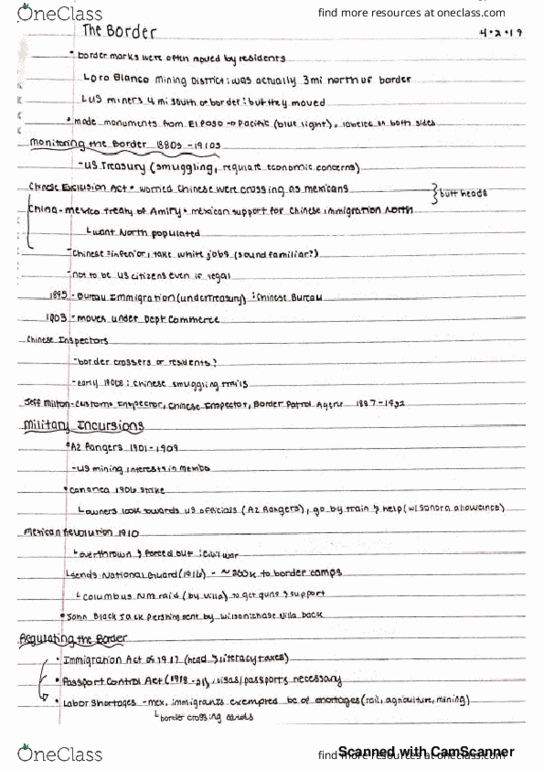 OneClass
find more resources at oneclass.com
The Border
4•2•19
• border marks were often moved by residents
Loro Blanco Mining District: was actually 3mi north of border
↳ US miners 4 mi south or border: but they moved
• made monuments from El Paso → Pacific (blue light), on both sides
monitoring the Border 1880s - 1910s
- US Treasury (smuggling, economic concerns)
Chinese Exclusion Act • worried Chinese were crossing as mexicans
} butt heads
China-mexico treaty of Amity • mexican support for Chinese immigration North
↳ want North populated
- Chinese = inferior, take white jobs (sound familiar?)
- not to be US citizens even if legal
- Bureau Immigration (under Treasury): Chinese Bureau
1903 - moves under Dept Commerce
Chinese Inspectors
- border crossers or residents?
- early 1900s: Chinese smuggling trails
Jeff Milton - Customs Inspector, Chinese Inspector, Border Patrol Agent 1887-1932
Military Incursions
• AZ Rangers 1901 - 1909
- US mining interests in mexico
• Cananea 1906 strike
↳ owners look towards US officials (AZ Rangers), go by train & help (w/ Sonora allowance)
Mexican Revolution 1910
↳ overthrown & forced out: civil war
↳ sends National Guard (1916) - to border camps
↳ Columbus NM raid (by Villa) to get guns & support
• John Black Jack Pershing sent by Wilson: chase Villa back
Regulating the Border
• Immigration Act of 1917 (head & literacy taxes)
• Passport Control Act (1918 - 21), visas/passports necessary
• Labor Shortages - mex. immigrants exempted bc of shortages (rail, agriculture, mining)
↳ border crossing cards
OneClass
find more resources at oneclass.com
Scanned with CamScanner